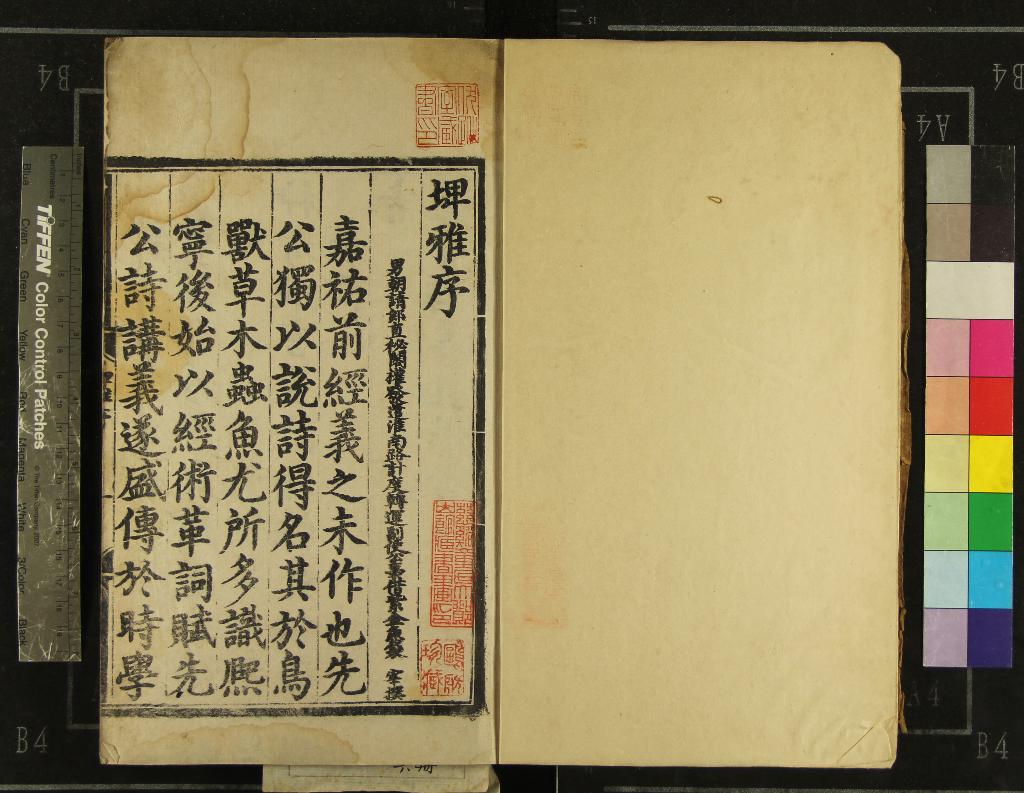 埤雅序
男朝請郎直祕閣權發遣淮南路計度轉運副使公事借紫金魚袋 宰撰
嘉祐前經義之未作也先
公獨以說詩得名其於鳥
獸草木蟲魚尤所多識熈
寧後始以經術革詞賦先
公詩講義遂盛傳於時學
B4
A4
B4
A4
B4
B4
TIFFEN Color Control Patches
Blue
Cyan
Green
Yellow
Red
Magenta
White
3/Color
Black
Inches
Centimetres